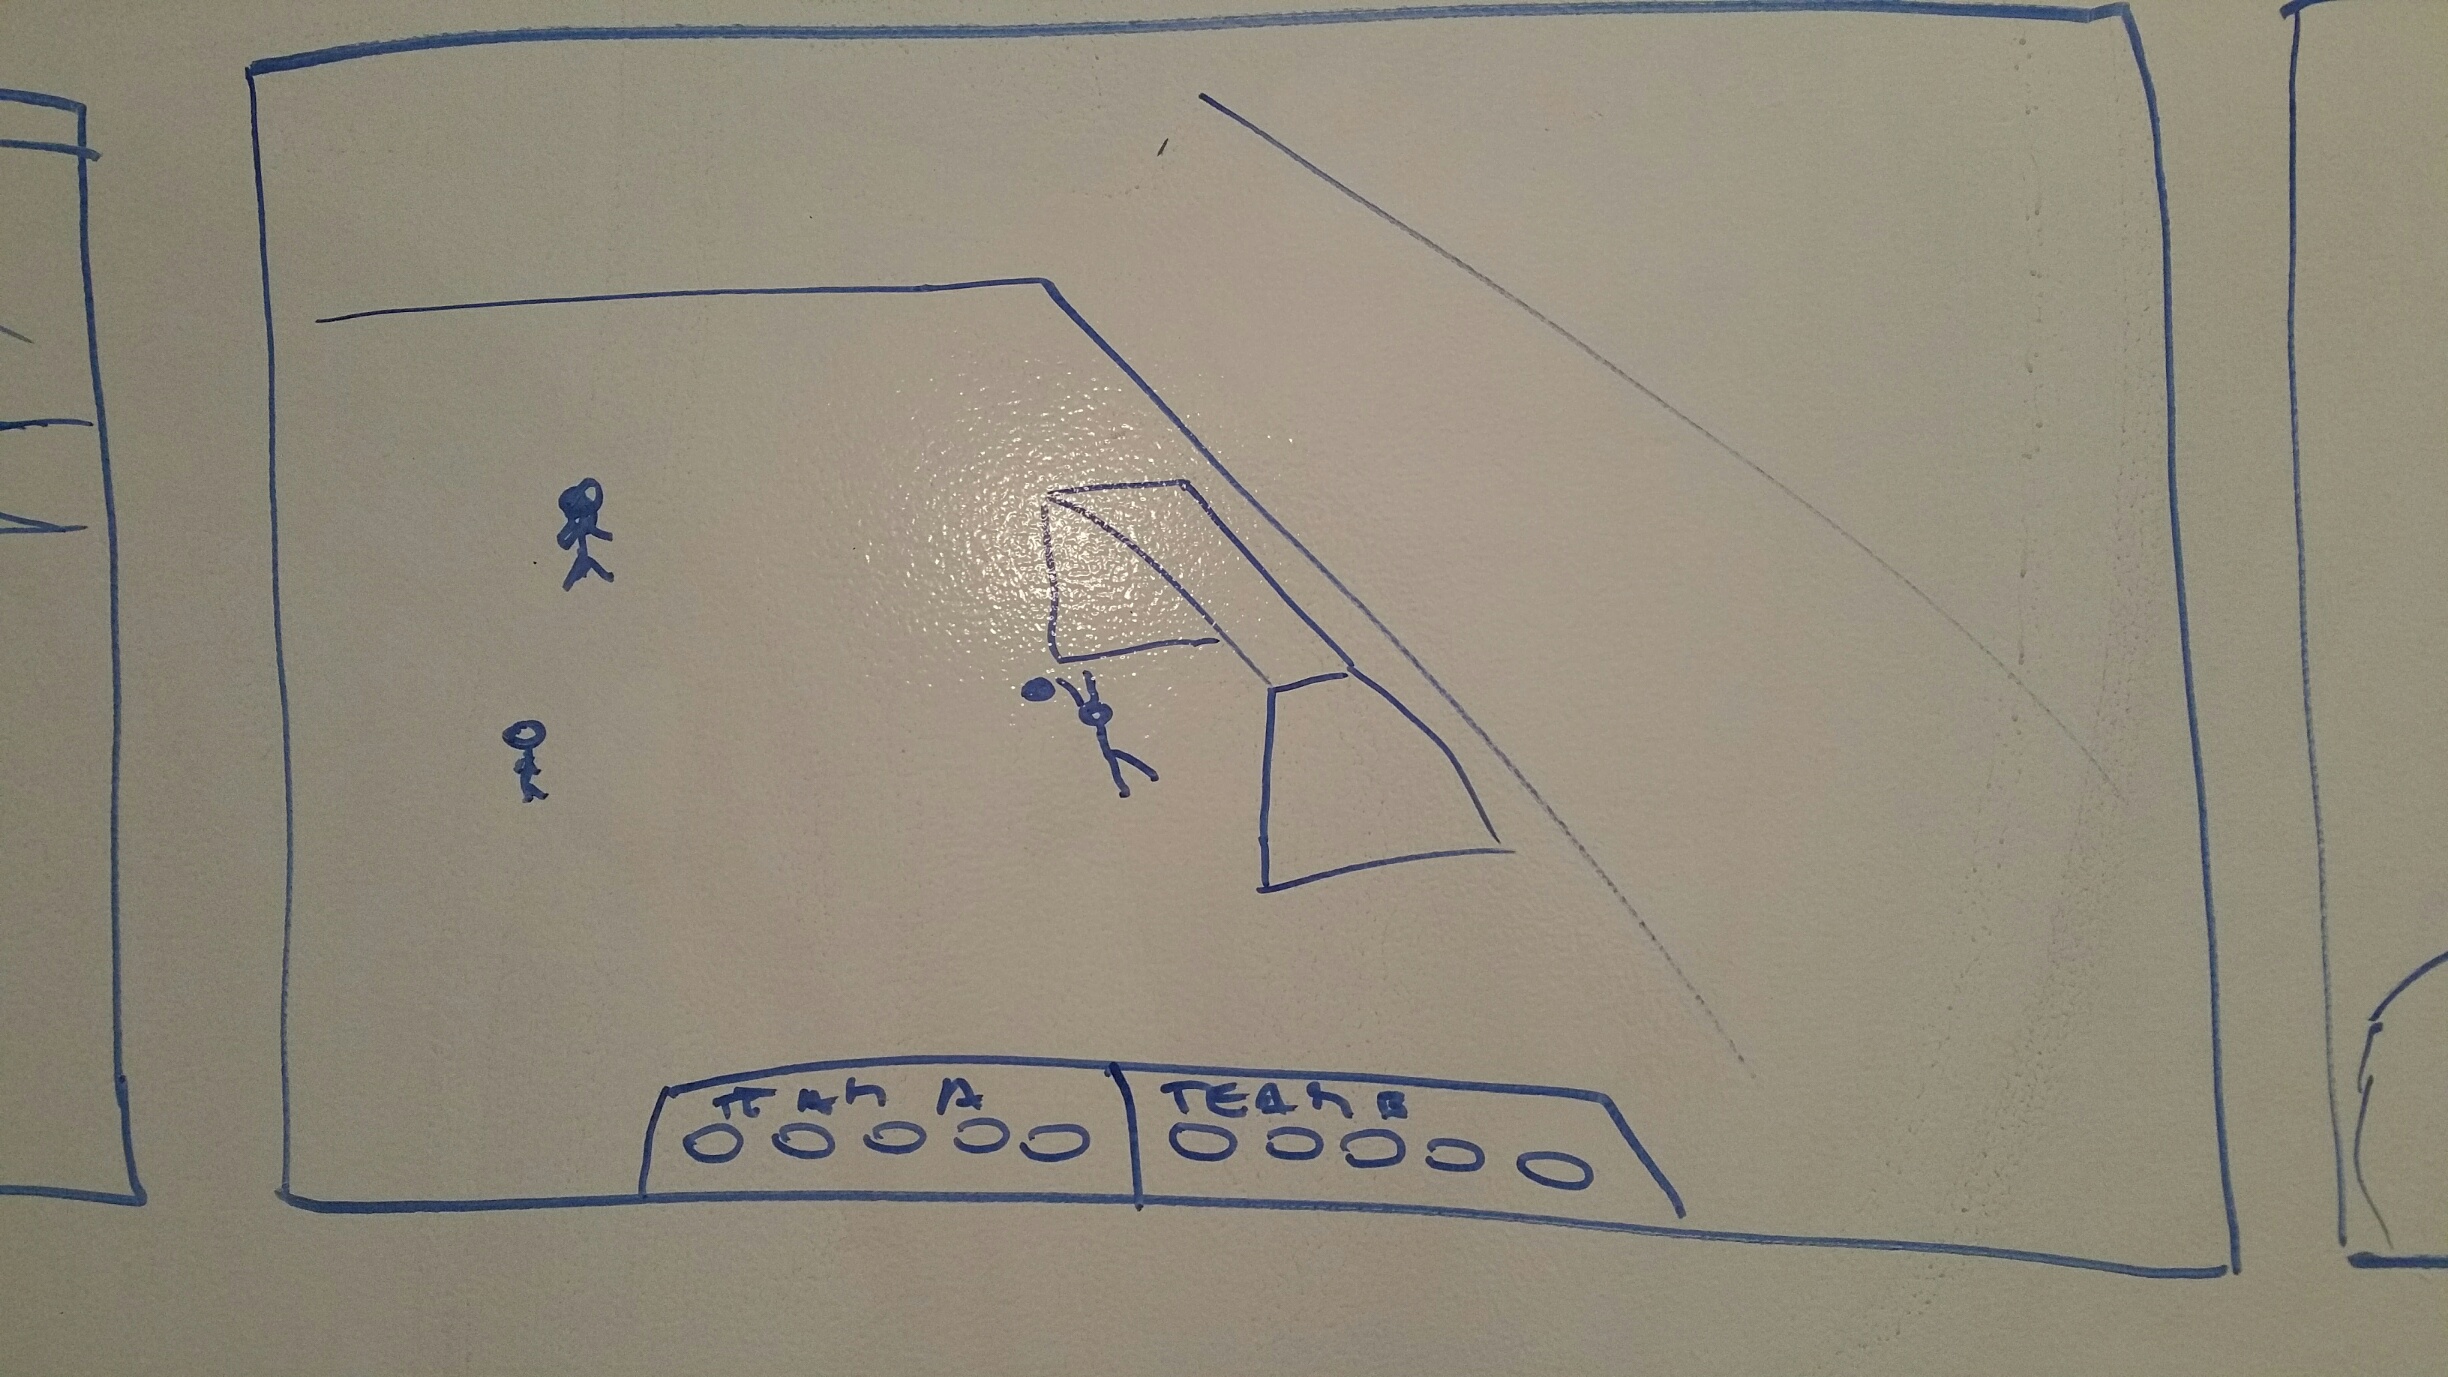 TEAM A
TEAM B